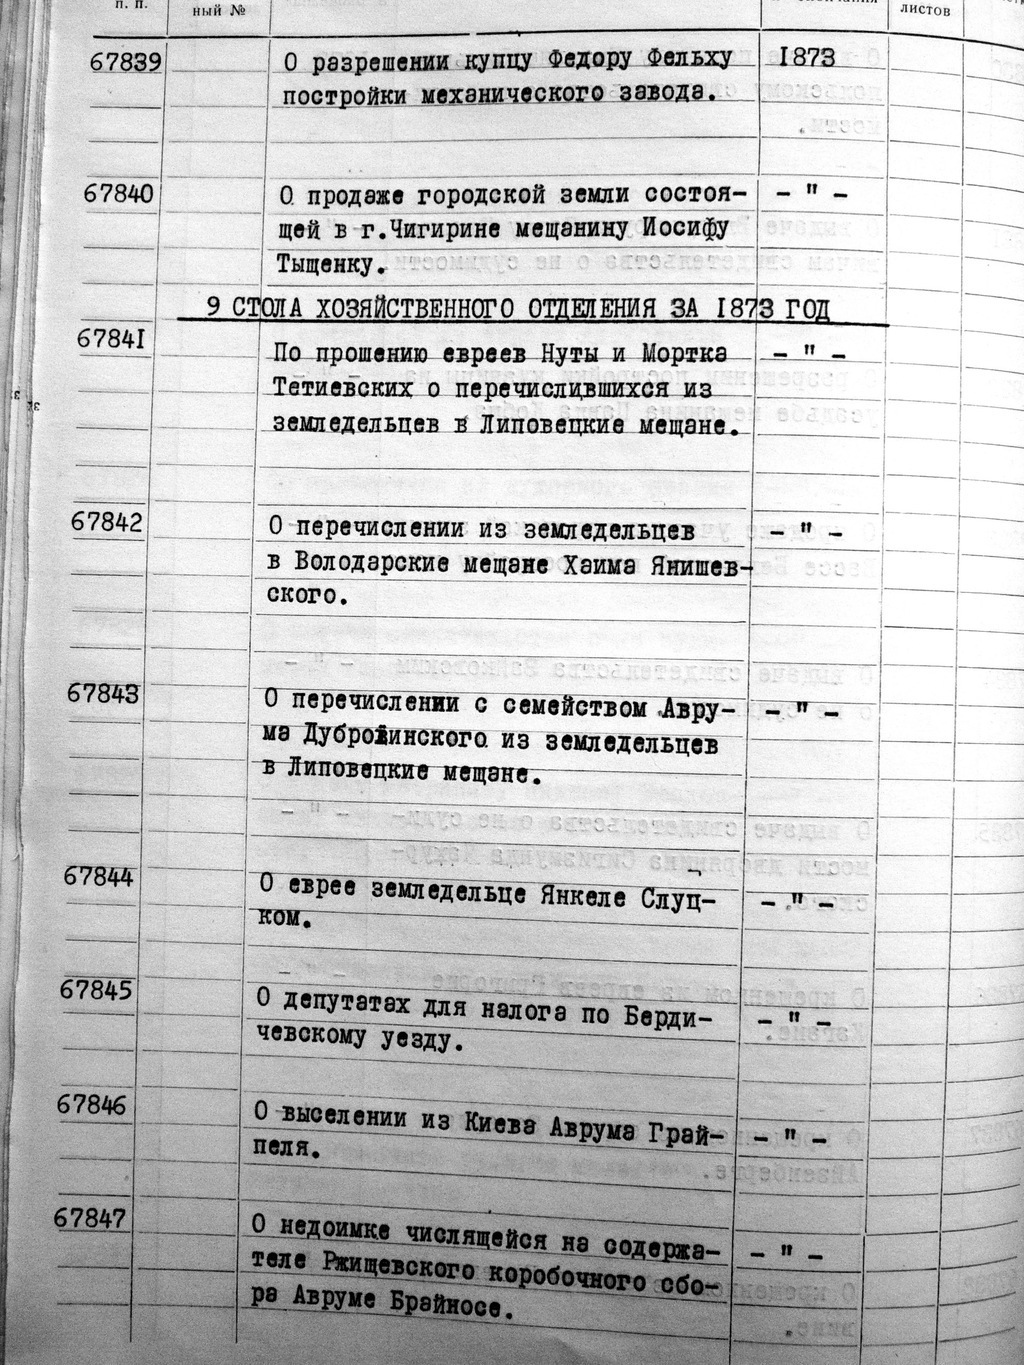 п. п.
ный №
листов
67839 О разрешении купцу Федору Фельху 1873
постройки механического завода.
67840 О продаже городской земли состоя- - " -
щей в г.Чигирине мещанину Иосифу
Тыщенку.
9 СТОЛА ХОЗЯЙСТВЕННОГО ОТДЕЛЕНИЯ ЗА 1873 ГОД
67841 По прошению евреев Нуты и Мортка - " -
Тетиевских о перечислившихся из
земледельцев в Липовецкие мещане.
67842 О перечислении из земледельцев - " -
в Володарские мещане Хаима Янишев-
ского.
67843 О перечислении с семейством Авру- - " -
ма из земледельцев
в Липовецкие мещане.
67844 О еврее земледельце Янкеле Слуц- - " -
ком.
67845 О депутатах для налога по Берди- - " -
чевскому уезду.
67846 О выселении из Киева Аврума Грай- - " -
пеля.
67847 О недоимке числящейся на содержа- - " -
теле Ржищевского коробочного сбо-
ра Авруме Брайносе.